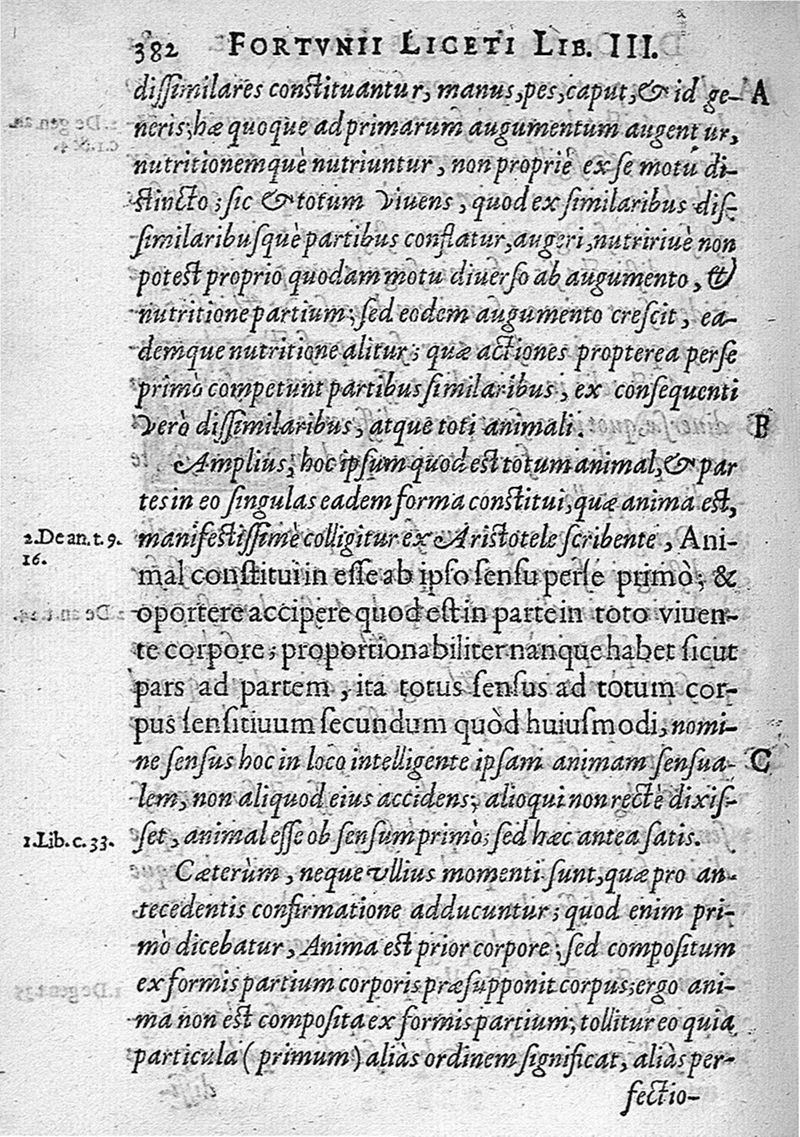 382 FORTVNII LICETI LIB. III.
dissimilares constituantur, manus, pes, caput, & id ge- A
neris; hæ quoque ad primarum augumentum augentur,
nutritionemquè nutriuntur, non propriè ex se motu di-
stincto; sic & totum viuens, quod ex similaribus dis-
similaribusquè partibus conflatur, augeri, nutririuè non
potest proprio quodam motu diuerso ab augumento, &
nutritione partium; sed eodem augumento crescit, ea-
demque nutritione alitur; quæ actiones propterea per se
primò competunt partibus similaribus, ex consequenti
verò dissimilaribus, atque toti animali. B
Amplius, hoc ipsum quod est totum animal, & par
tes in eo singulas eadem forma constitui, quæ anima est,
2. De an. t. 9. manifestissimè colligitur ex Aristotele scribente, Ani-
16.
mal constitui in esse ab ipso sensu per se primò; &
oportere accipere quod est in parte in toto viuen-
te corpore; proportionabiliter nanque habet sicut
pars ad partem, ita totus sensus ad totum cor-
pus sensitiuum secundum quòd huiusmodi, nomi-
ne sensus hoc in loco intelligente ipsam animam sensua- C
lem, non aliquod eius accidens; alioqui non rectè dixis-
1. Lib. c. 33. set, animal esse ob sensum primò; sed hæc antea satis.
Cæterùm, neque vllius momenti sunt, quæ pro an-
tecedentis confirmatione adducuntur; quod enim pri-
mò dicebatur, Anima est prior corpore; sed compositum
ex formis partium corporis præsupponit corpus; ergo ani-
ma non est composita ex formis partium; tollitur eo quia
particula (primum) aliàs ordinem significat, aliàs per-
fectio-